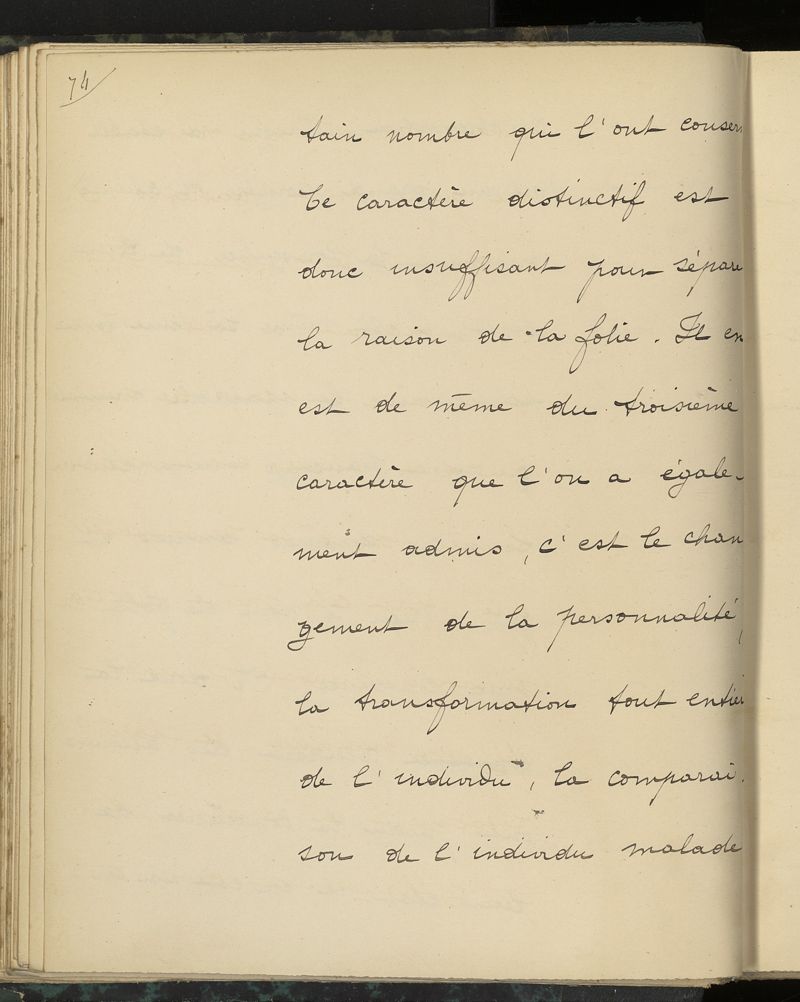 74
tain nombre qui l'ont conser
Ce caractère distinctif est
donc insuffisant pour sépare
la raison de la folie. Il en
est de même du troisième
caractère que l'on a égale-
ment admis, c'est le chan
gement de la personnalité,
la transformation tout entièr
de l'individu, la comparai-
son de l'individu malade